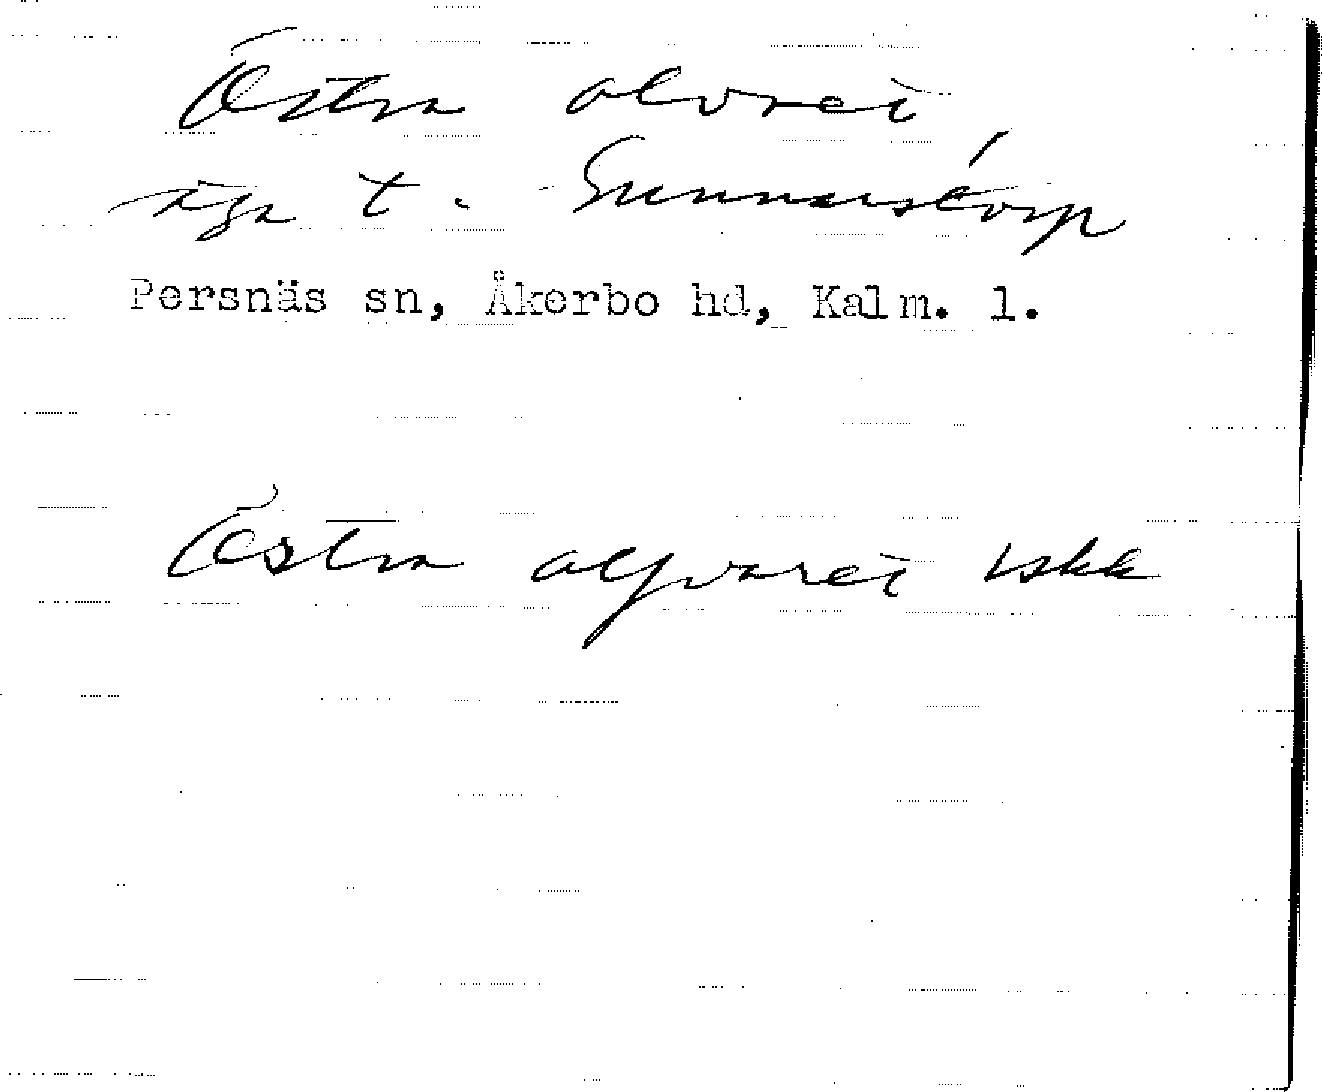 Östra alvret
äga t. Gunnarstorp
Persnäs sn, Åkerbo hd, Kalm. l.
Östra alfvaret